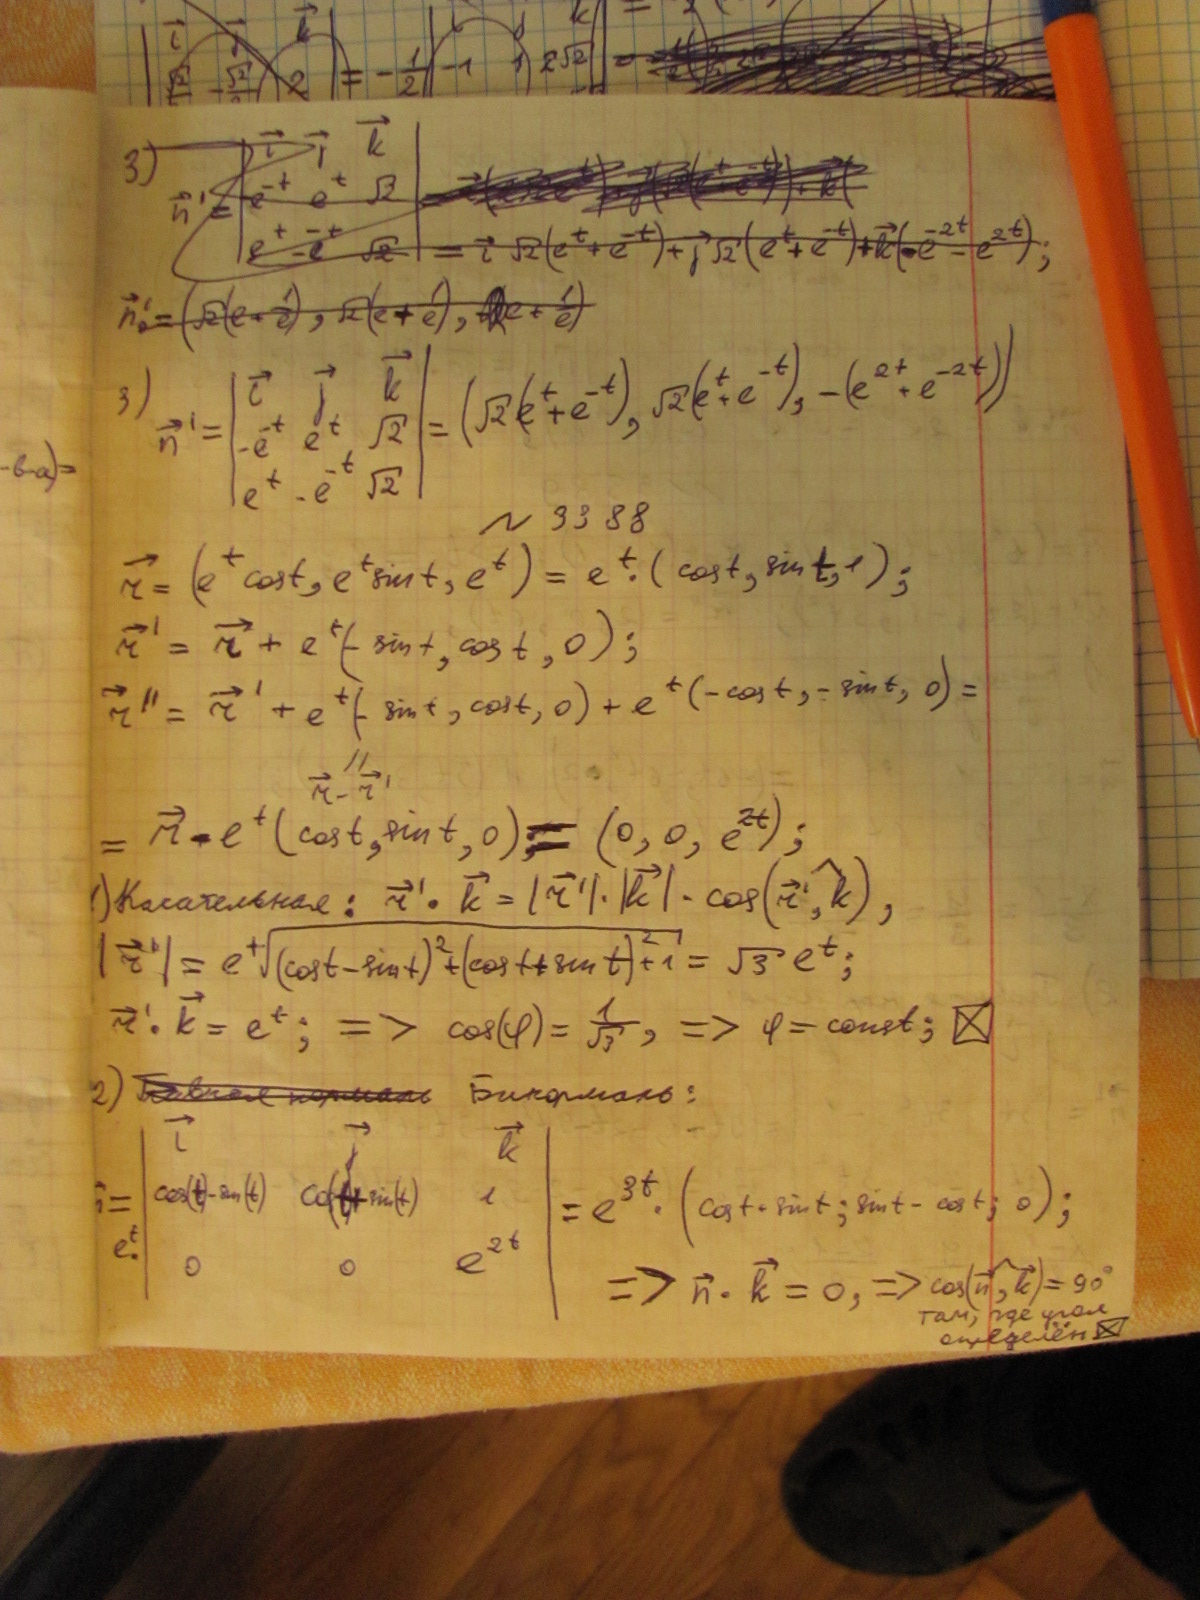 i⃗ j⃗ k⃗
√2/2 -√2/2 2 | = -1/2 | -1 1 2√2 | =
3) n⃗' = | i⃗ j⃗ k⃗
e^-t e^t √2
e^t -e^-t √2 | = i⃗ √2(e^t + e^-t) + j⃗ √2(e^t + e^-t) + k⃗(-e^-2t - e^2t);
n⃗₀' = (√2(e + 1/e), √2(e + 1/e), (e + 1/e)
3) n⃗' = | i⃗ j⃗ k⃗
-e^-t e^t √2
e^t -e^-t √2 | = (√2(e^t + e^-t), √2(e^t + e^-t), -(e^2t + e^-2t))
-b-a)=
~ 3388
r⃗ = (e^t cost, e^t sint, e^t) = e^t·(cost, sint, 1);
r⃗' = r⃗ + e^t(- sint, cost, 0);
r⃗'' = r⃗' + e^t(- sint, cost, 0) + e^t(-cost, - sint, 0) =
//
r⃗ - r⃗'
= r⃗ - e^t(cost, sint, 0) = (0, 0, e^2t);
1) Касательная: r⃗'· k⃗ = |r⃗'|·|k⃗| · cos(r⃗', k⃗),
|r⃗'| = e^t √((cost - sint)² + (cost + sint)² + 1) = √3 e^t;
r⃗'· k⃗ = e^t; => cos(φ) = 1/√3, => φ = const; ☒
2) Главная нормаль Бинормаль:
n⃗ = e^t· | i⃗ j⃗ k⃗
cos(t)-sin(t) cos(t)+sin(t) 1
0 0 e^2t | = e^3t · (cost + sint; sint - cost; 0);
=> n⃗ · k⃗ = 0, => cos(n⃗, k⃗) = 90°
там, где угол
определён ☒